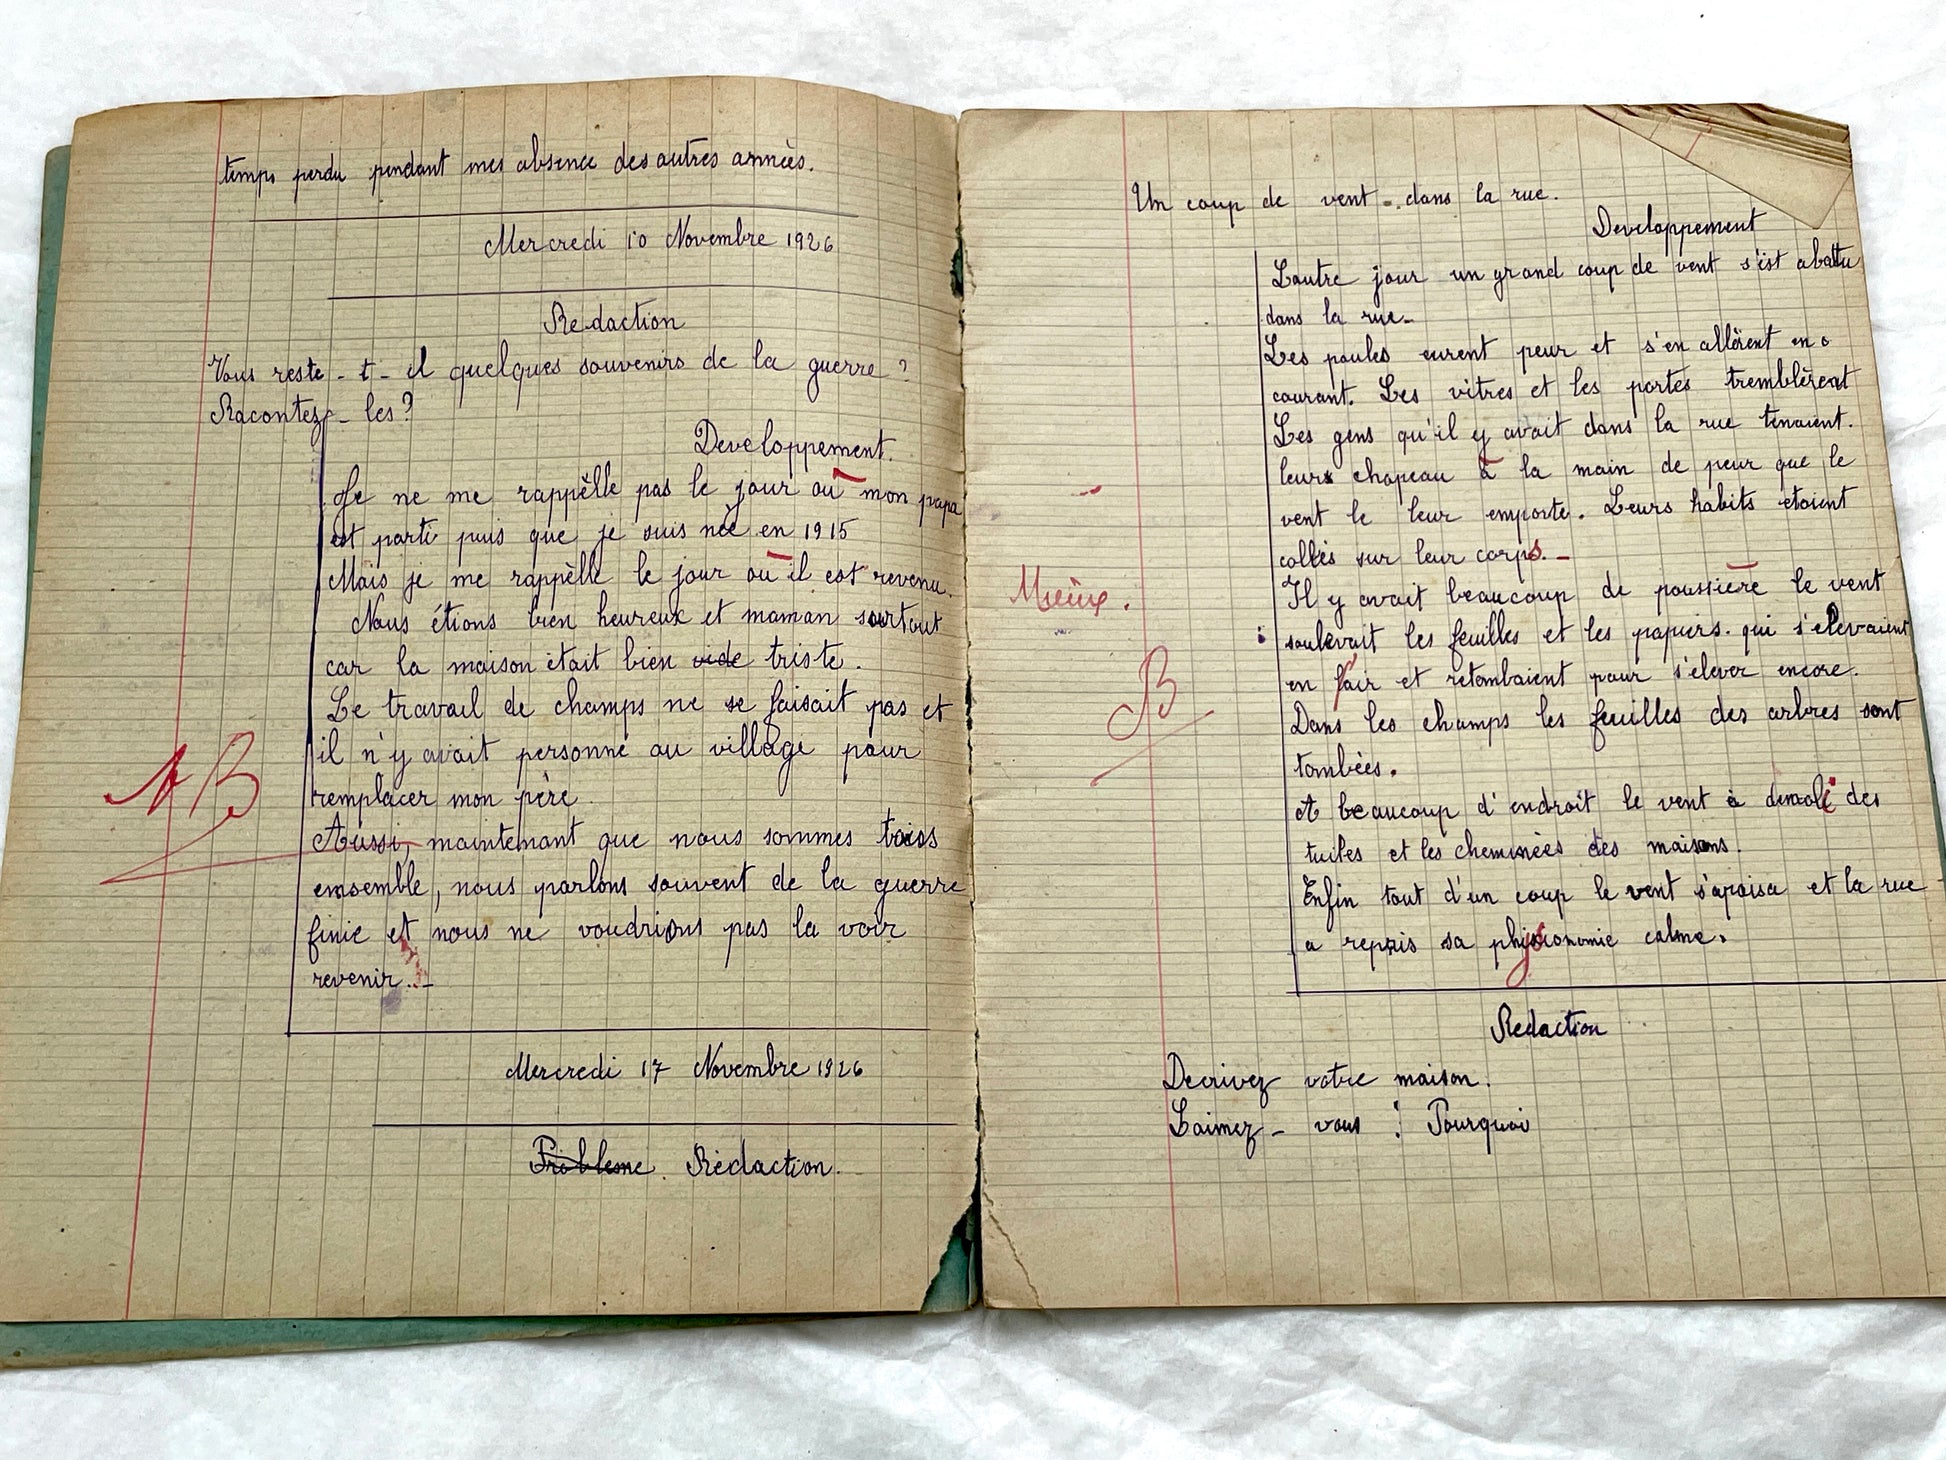 temps perdu pendant mes absence des autres années.
Mercredi 10 Novembre 1926
Redaction
Vous reste - t - il quelques souvenirs de la guerre ?
Racontez - les ?
Developpement.
Je ne me rappèlle pas le jour où mon papa
est parti puis que je suis née en 1915
Mais je me rappèlle le jour où il est revenu.
Nous étions bien heureux et maman surtout
car la maison était bien vide triste.
Le travail de champs ne se faisait pas et
il n'y avait personne au village pour
remplacer mon père
Aussi, maintenant que nous sommes tous
ensemble, nous parlons souvent de la guerre
finie et nous ne voudrions pas la voir
revenir. -
AB
Mercredi 17 Novembre 1926
Problème Rédaction.
Un coup de vent dans la rue.
Developpement
Lautre jour un grand coup de vent s'est abattu
dans la rue.
Les poules eurent peur et s'en allèrent en
courant. Les vitres et les portes tremblèrent
Les gens qu'il y avait dans la rue tenaient.
leurs chapeau à la main de peur que le
vent le leur emporte. Leurs habits étaient
collés sur leur corps. -
Il y avait beaucoup de poussière le vent
soulevait les feuilles et les papiers. qui s'élevaient
en l'air et retombaient pour s'élever encore.
Dans les champs les feuilles des arbres sont
tombées.
A beaucoup d'endroit le vent à demoli des
tuiles et les cheminées des maisons.
Enfin tout d'un coup le vent s'apaisa et la rue
a repris sa physionomie calme.
Mieux.
B
Redaction
Decrivez votre maison.
Laimez - vous : Pourquoi